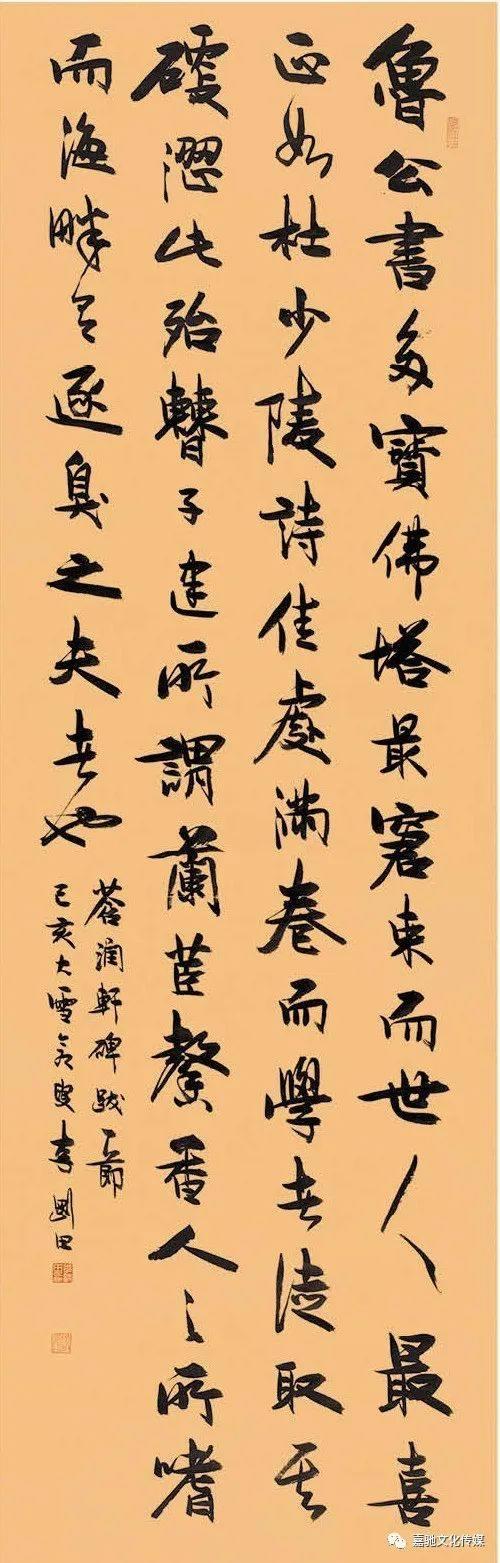 魯公書多寶佛塔最窘束而世人最喜
正如杜少陵詩佳處滿卷而學者徒取其
澀此殆子建所謂蘭茝馨香人之所嗜
而海畔有逐臭之夫者也
蒼潤軒碑跋一節
己亥大雪叟李國田
嘉驰文化传媒